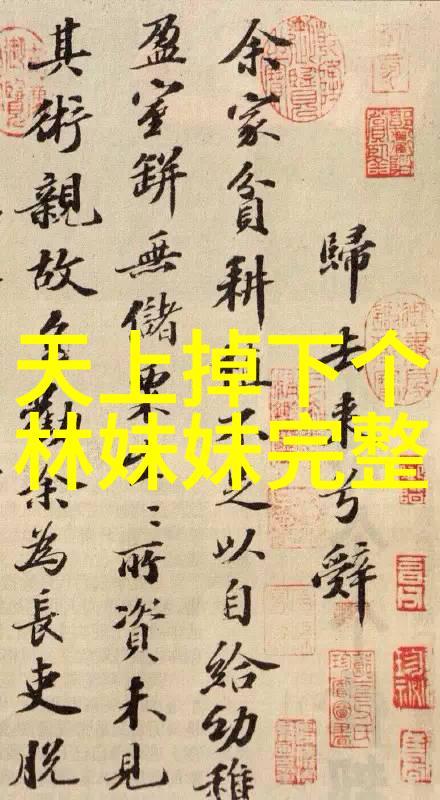 天上掉下个
林妹妹完整
歸去来兮辭
余家貧耕植不足以自給幼稚
盈室缾無儲粟生〻所資未見
其術親故多勸余為長吏脱